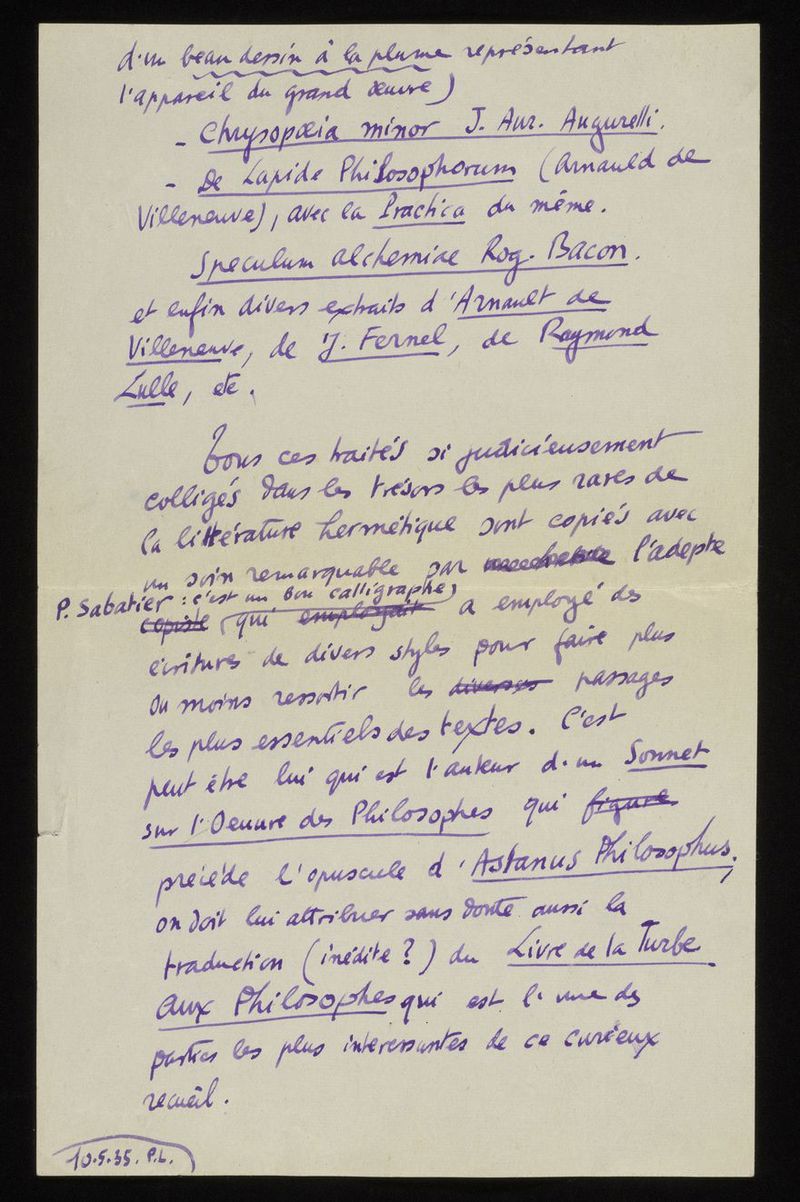 d'un beau dessin à la plume représentant
l'appareil du grand œuvre)
- Chrysopœia minor J. Aur. Augurelli.
- De Lapide Philosophorum (Arnauld de
Villeneuve), avec la Practica du même.
Speculum alchemiae Rog. Bacon.
et enfin divers extraits d'Arnault de
Villeneuve, de J. Fernel, de Raymond
Lulle, etc.
Tous ces traités si judicieusement
colligés dans les trésors les plus rares de
la littérature hermétique sont copiés avec
un soin remarquable par l'adepte
P. Sabatier : c'est un bon calligraphe)
copiste qui employait a employé des
écritures de divers styles pour faire plus
ou moins ressortir les diverses passages
les plus essentiels des textes. C'est
peut être lui qui est l'auteur d'un Sonnet
sur l'Oeuvre des Philosophes qui figure
précède l'opuscule d'Astanus Philosophus,
on doit lui attribuer sans doute aussi la
traduction (inédite?) du Livre de la Turbe
aux Philosophes qui est l'une des
parties les plus interessantes de ce curieux
recueil.
10.5.35. P.L.